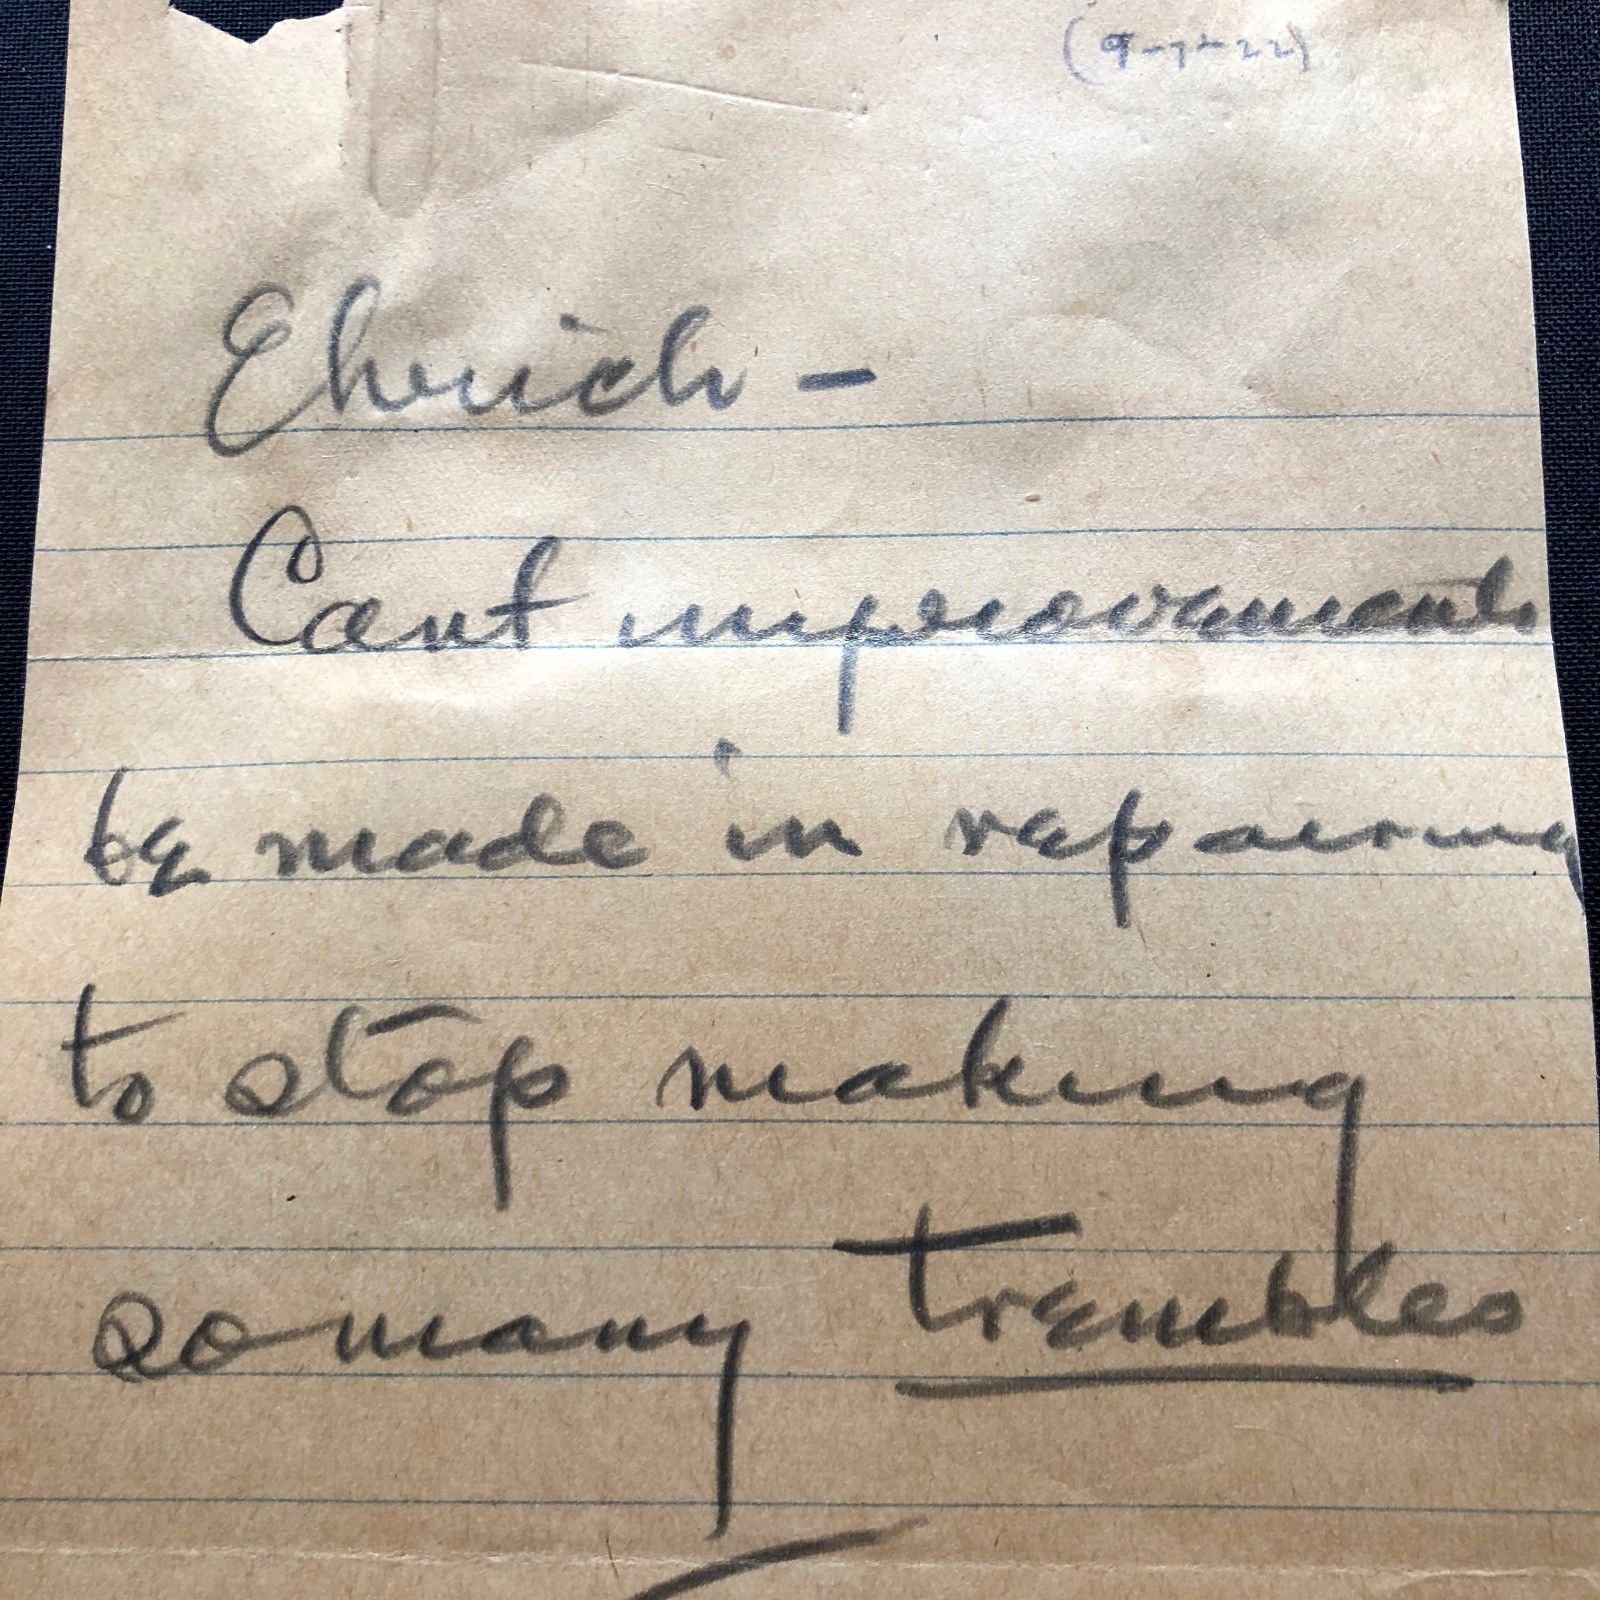 (9-7-22)
Eherich -
Cant improvements
be made in repairing
to stop making
so many trembles